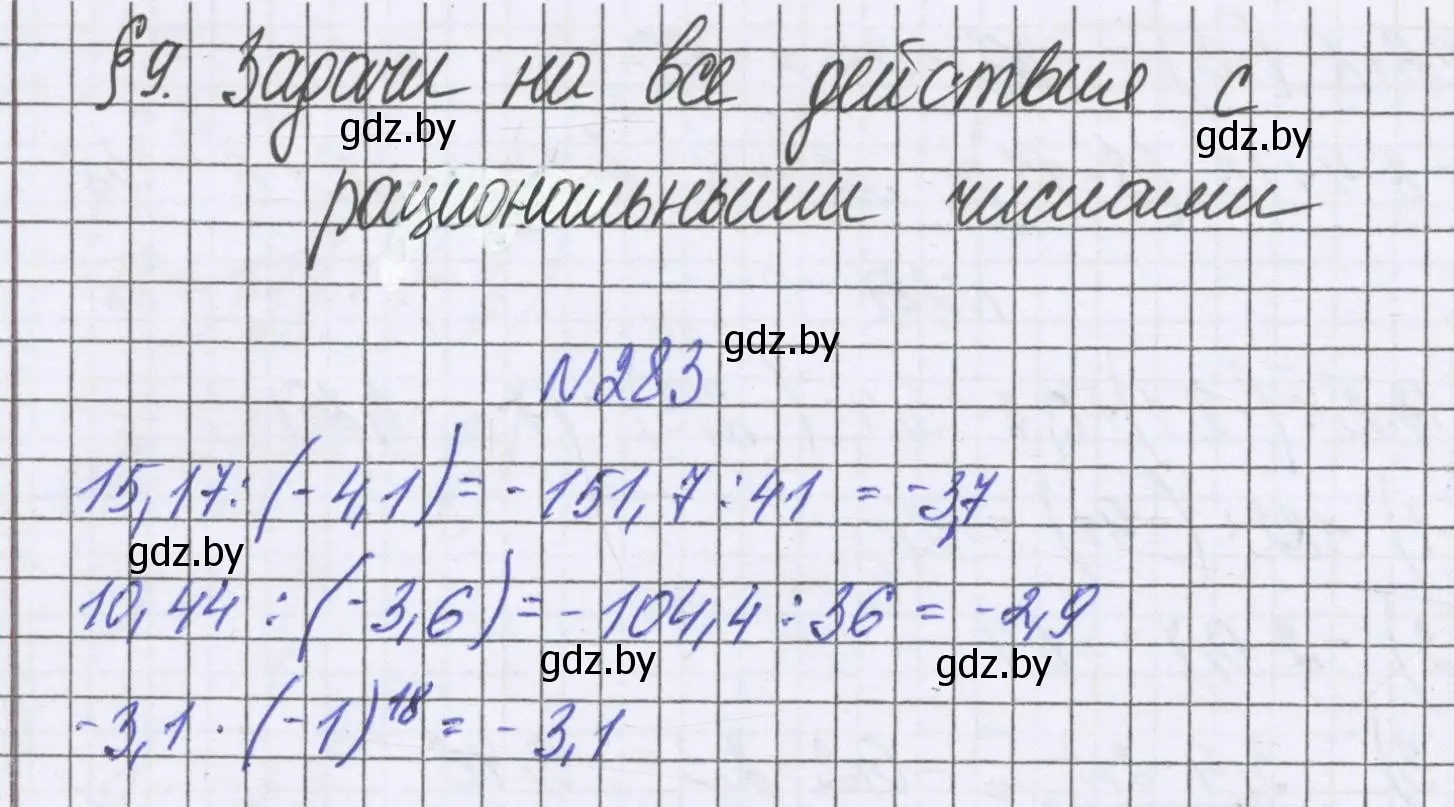 §9. Задачи на все действия с
gdz.by gdz.by
рациональными числами
gdz.by
N283
15,17:(-4,1)=-151,7:41=-3,7
gdz.by
10,44:(-3,6)=-104,4:36=-2,9
gdz.by gdz.by
-3,1·(-1)¹⁸=-3,1